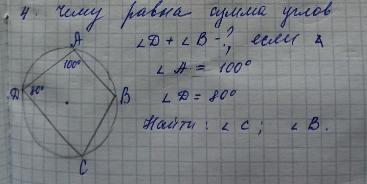 4. Чему равна сумма углов
∠D + ∠B - ?, если
∠A = 100°
∠D = 80°
Найти: ∠C; ∠B.
A
100°
D
80°
B
C